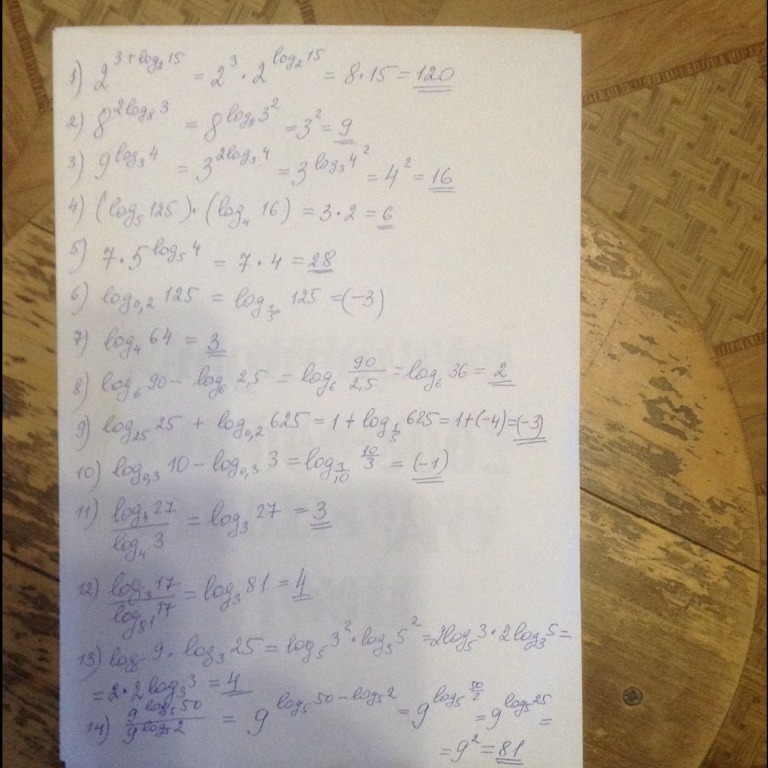 1) 2^(3+log₂15) = 2³ · 2^(log₂15) = 8·15 = 120
2) 8^(2log₈3) = 8^(log₈3²) = 3² = 9
3) 9^(log₃4) = 3^(2log₃4) = 3^(log₃4²) = 4² = 16
4) (log₅125)·(log₄ 16) = 3·2 = 6
5) 7·5^(log₅4) = 7·4 = 28
6) log₀,₂ 125 = log_(1/5) 125 = (-3)
7) log₄ 64 = 3
8) log₆ 90 - log₆ 2,5 = log₆ 90/2,5 = log₆ 36 = 2
9) log₂₅ 25 + log₀,₂ 625 = 1 + log_(1/5) 625 = 1+(-4) = (-3)
10) log₀,₃ 10 - log₀,₃ 3 = log_(3/10) 10/3 = (-1)
11) log₄ 27 / log₄ 3 = log₃ 27 = 3
12) log₃ 17 / log₈₁ 17 = log₃ 81 = 4
13) log₅ 9 · log₃ 25 = log₅ 3² · log₃ 5² = 2log₅ 3 · 2log₃ 5 =
= 2·2log₃ 3 = 4
14) 9^(log₅50) / 9^(log₅2) = 9^(log₅50 - log₅2) = 9^(log₅ 50/2) = 9^(log₅25) =
= 9² = 81